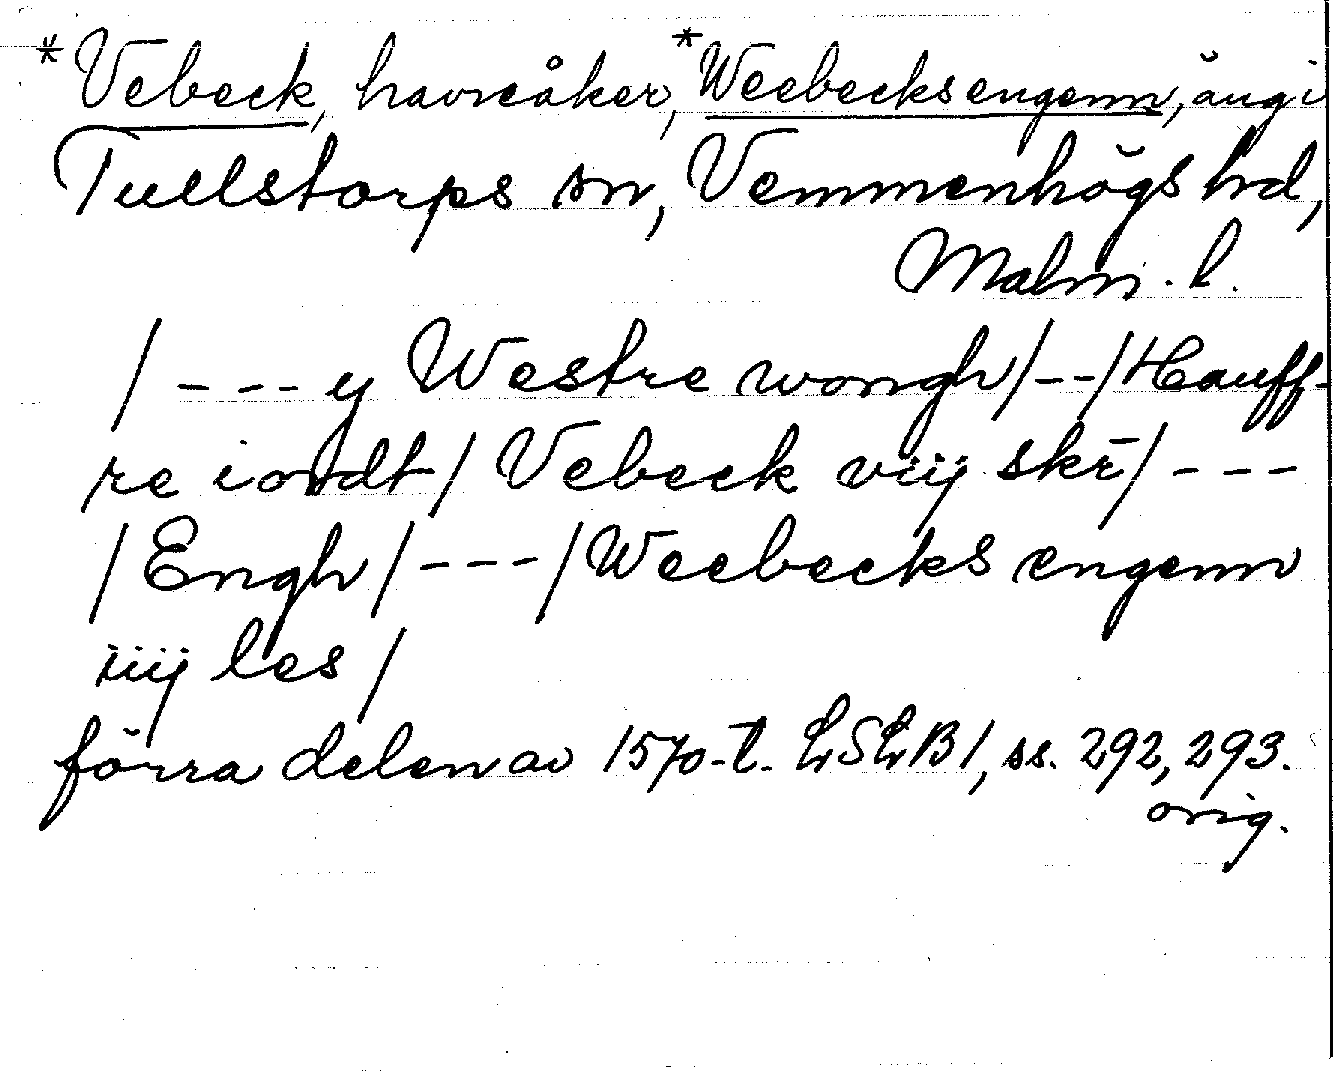 *Vebeck, havreåker, *Weebecks engenn, äng i
Tullstorps sn, Vemmenhögs hrd,
Malm. l.
/ - - - y Westre wongh/ - - /Hauff-
re iordt/ Vebeck viij skr̄/ - - -
/Engh/ - - - /Weebecks engenn
iiij les/
förra delen av 1570-t. LSLB1, ss. 292, 293.
orig.